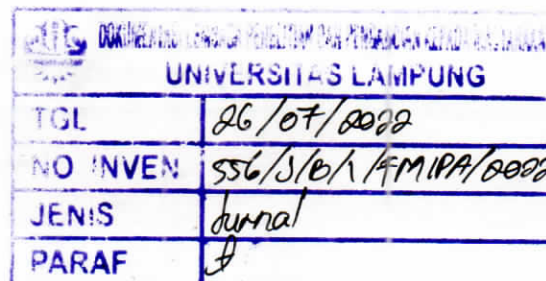 DOKUMENTASI LEMBAGA PENELITIAN DAN PENGABDIAN KEPADA MASYARAKAT
UNIVERSITAS LAMPUNG
TGL 26/07/2022
NO INVEN 556/J/B/1/FMIPA/2022
JENIS Jurnal
PARAF